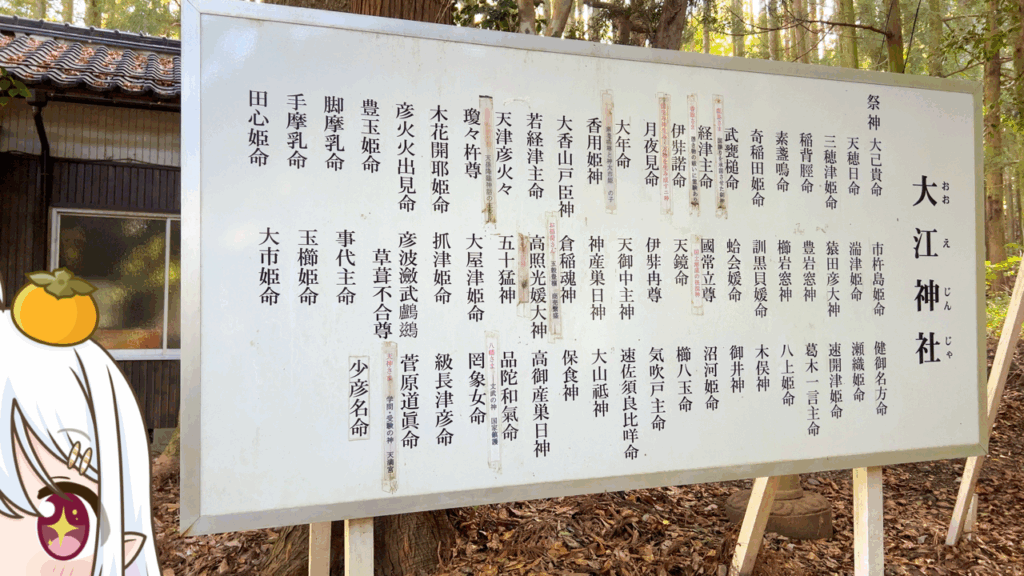 おおえじんじゃ
大江神社
祭神 大己貴命
天穂日命
三穂津姫命
稲背脛命
素盞嗚命
奇稲田姫命
武甕槌命
経津主命
伊弉諾命
月夜見命
大年命
香用姫神
大香山戸臣神
若経津主命
天津彦火々
瓊々杵尊
木花開耶姫命
彦火火出見命
豊玉姫命
脚摩乳命
手摩乳命
田心姫命
市杵島姫命
湍津姫命
猿田彦大神
豊岩窓神
櫛岩窓神
訓黒貝媛命
蛤会媛命
國常立尊
天鏡命
伊弉冉尊
天御中主神
神産巣日神
倉稲魂神
高照光媛大神
五十猛神
大屋津姫命
抓津姫命
彦波瀲武鸕鷀
草葺不合尊
事代主命
玉櫛姫命
大市姫命
健御名方命
瀬織姫命
速開津姫命
葛木一言主命
八上姫命
木俣神
御井神
沼河姫命
櫛八玉命
気吹戸主命
速佐須良比咩命
大山祗神
保食神
高御産巣日神
品陀和氣命
八幡さま…文武の神 国家鎮護
罔象女命
級長津彦命
菅原道眞命
天神さま… 学問・受験の神 天満宮
少彦名命